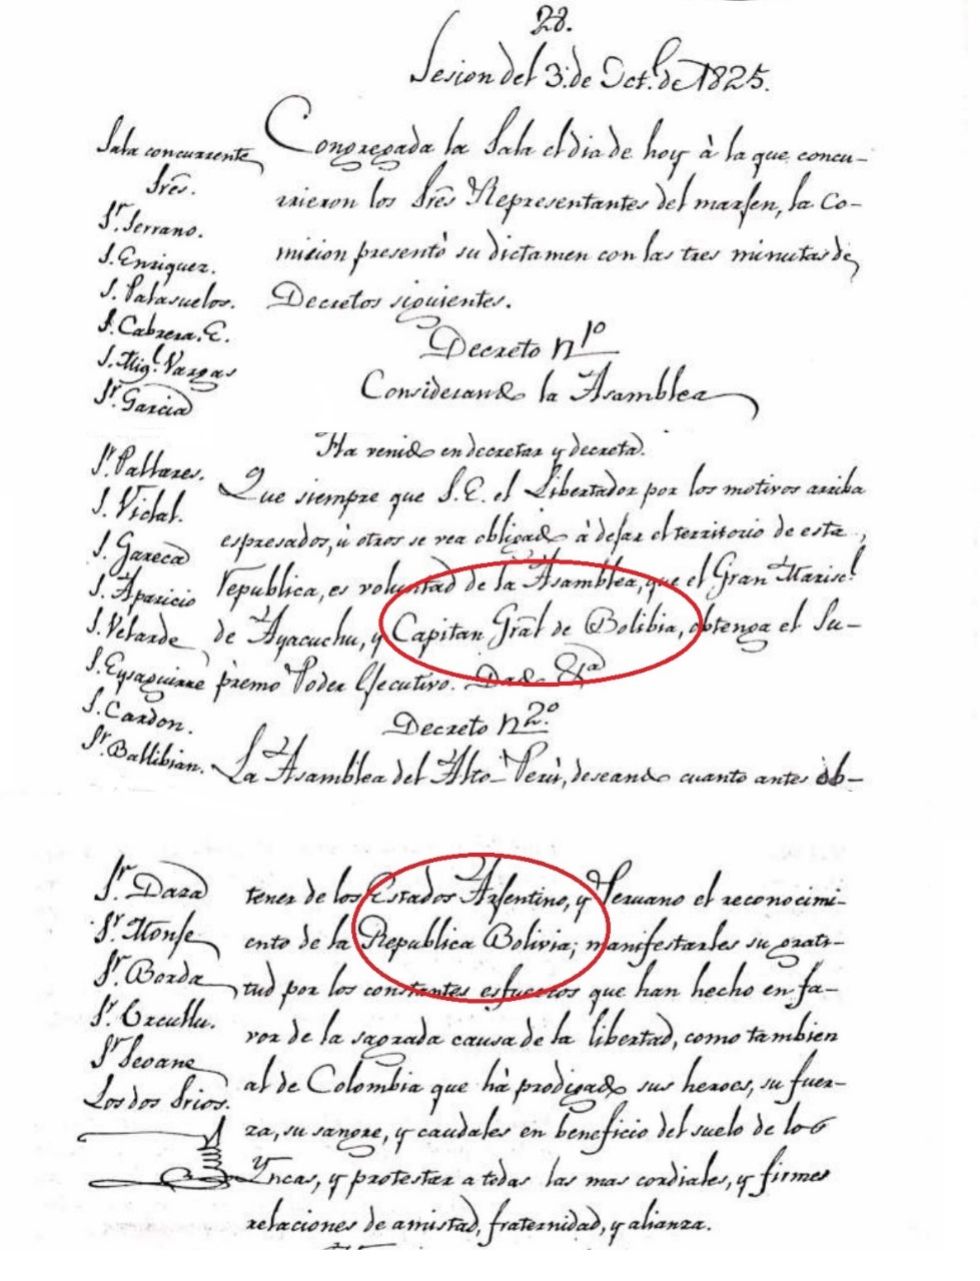 28.
Sesion del 3. de Oct.e de 1825.
Sala concurrente
Sres.
Sr. Serrano.
S. Enriquez.
S. Palasuelos.
S. Cabrera. E.
S. Mig.l Vargas
Sr. Garcia
Congregada la Sala el dia de hoy à la que concu-
rrieron los Sres Representantes del marjen, la Co-
mision presentò su dictamen con las tres minutas de
Decretos siguientes.
Decreto n 1º
Considerando la Asamblea
Sr. Pallares.
S. Vidal.
S. Gareca
S. Aparicio
S. Velarde
S. Eysaguirre
S. Cardon.
Sr. Ballibian.
Ha venido en decretar y decreta.
Que siempre que S. E. el Libertador por los motivos arriba
espresados, ù otros se vea obligado à dejar el territorio de esta
Republica, es voluntad de la Asamblea, que el Gran Marisc.l
de Ayacuchu, y Capitan Gral de Bolibia, obtenga el Su-
premo Poder Ejecutivo. Dado &a
Decreto n 2º.
La Asamblea del Alto-Perù, deseando cuanto antes ob-
Sr. Daza
Sr. Monje
Sr. Borda
Sr. Urcullu.
Sr. Seoane
Los dos Srios.
tener de los Estados Arjentino, y Peruano el reconocimi-
ento de la Republica Bolivia; manifestarles su grati-
tud por los constantes esfuerzos que han hecho en fa-
vor de la sagrada causa de la libertad, como tambien
al de Colombia que hà prodigado sus heroes, su fuer-
za, su sangre, y caudales en beneficio del suelo de los
Yncas, y protestar a todas las mas cordiales, y firmes
relaciones de amistad, fraternidad, y alianza.